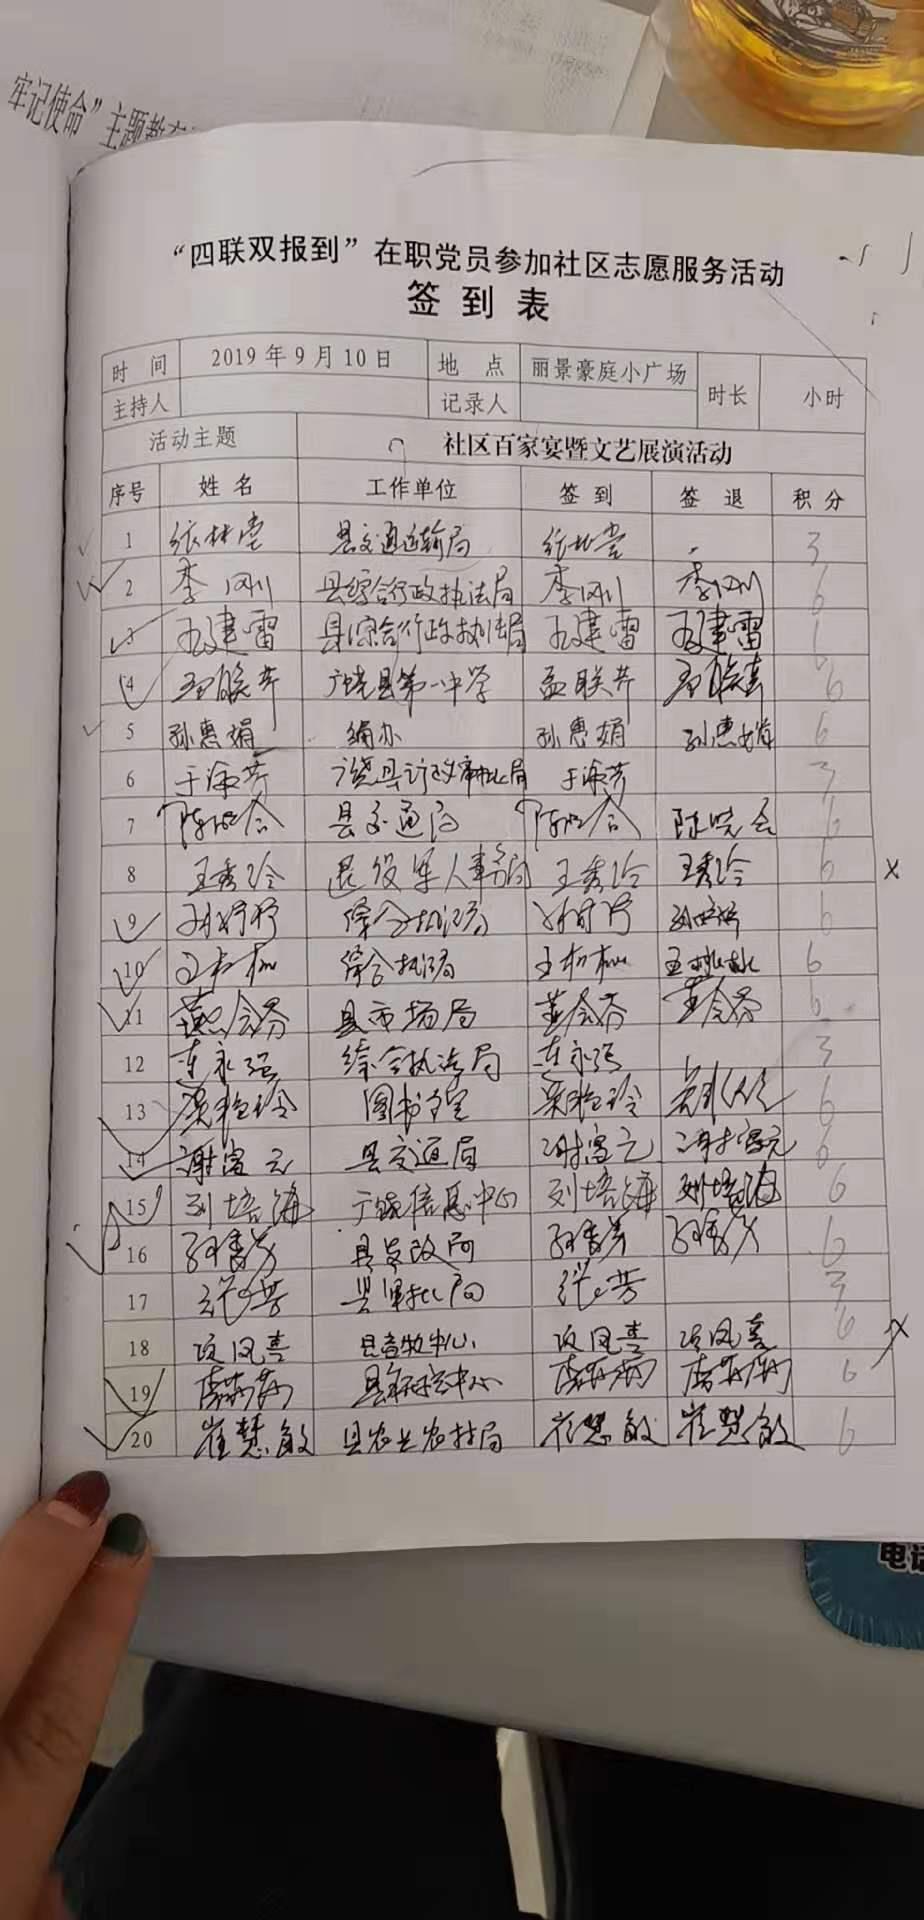 牢记使命”主题教
“四联双报到”在职党员参加社区志愿服务活动
签到表
时间 2019年9月10日 地点 丽景豪庭小广场 时长 小时
主持人 记录人
活动主题 社区百家宴暨文艺展演活动
序号 姓名 工作单位 签到 签退 积分
1 张林堂 县交通运输局 张林堂 3
2 李刚 县综合行政执法局 李刚 李刚 6
3 建雷 县综合行政执法局 建雷 建雷 6
4 孟联芹 广饶县第一中学 孟联芹 6
5 孙惠娟 编办 孙惠娟 孙惠娟 6
6 于淑芳 广饶县行政审批局 于淑芳 3
7 陈晓会 县交通局 陈晓会 陈晓会 6
8 王秀玲 退役军人事务局 王秀玲 王秀玲 6
9 综合执法局 6
10 综合执法局 6
11 县市场局 6
12 永强 综合执法局 永强 3
13 图书馆 6
14 谢富元 县交通局 谢富元 谢富元 6
15 刘培海 广饶信息中心 刘培海 刘培海 6
16 县发改局 6
17 张芳 县审批局 张芳 3
18 凤喜 县畜牧中心 凤喜 凤喜 6
19 6
20 崔慧敏 县农业农村局 崔慧敏 崔慧敏 6
电话